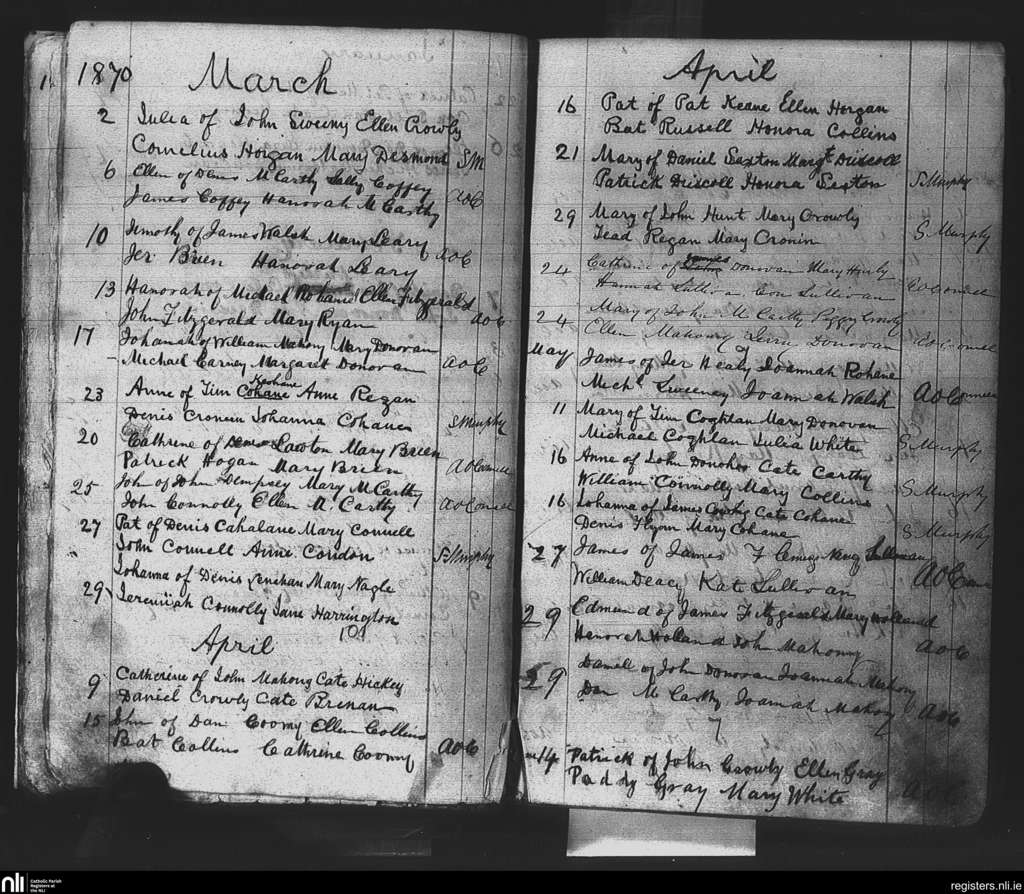 1870 March
2 Julia of John Sweeny Ellen Crowly
Cornelius Horgan Mary Desmond SM
6 Ellen of Denis McCarthy Coffey
James Coffey Hanorah McCarthy AOC
10 Timothy of James Walsh Mary Leary
Jer Brien Hanorah Leary AOC
13 Hanorah of Michael Ellen Fitzgerald
John Fitzgerald Mary Ryan AOC
17 Johannah of William Mahony Mary Donovan
Michael Carney Margaret Donovan AOC
Keohane
23 Anne of Tim Cohane Anne Regan
Denis Cronin Johanna Cohane S Murphy
20 Cathrine of Lawton Mary Brien
Patrick Hogan Mary Brien AOConnell
25 John of John Dempsey Mary McCarthy
John Connolly Ellen McCarthy AOConnell
27 Pat of Denis Cahalane Mary Connell
John Connell Anne Condon S Murphy
Johanna of Denis Lenihan Mary Nagle
29 Jeremiah Connolly Jane Harrington
April
9 Catherine of John Mahony Cate Hickey
Daniel Crowly Cate Brenan
15 John of Dan Coomy Ellen Collins
Bat Collins Cathrine Coomy AOC
April
16 Pat of Pat Keane Ellen Horgan
Bat Russell Honora Collins
21 Mary of Daniel Sexton Margt Driscoll
Patrick Driscoll Honora Sexton S Murphy
29 Mary of John Hunt Mary Crowly
Regan Mary Cronin S. Murphy
James
24 Cathrine of Donovan Mary Hurly
Hannah Sullivan Con Sullivan AOConnell
24 Mary of John McCarthy Peggy Crowly
Ellen Mahony Donovan AOConnell
May 7 James of Jer Healy Joannah Rohane
Michl Sweeney Joannah Walsh AOConnell
11 Mary of Tim Coghlan Mary Donovan
Michael Coghlan Julia White S Murphy
16 Anne of John Donohoe Cate Carthy
William Connolly Mary Collins S. Murphy
16 Johanna of James Cate Cohane
Denis Flynn Mary Cohane S. Murphy
27 James of James Sullivan
William Deacy Kate Sullivan AOConn
29 Edmund of James Fitzgerald Mary Holland
Hanorah Holland John Mahony AOC
29 Daniell of John Donovan Joannah Mahony
Dan McCarthy Joannah Mahony AOC
14 Patrick of John Crowly Ellen Gray
Paddy Gray Mary White AOC
nli Catholic Parish
Registers at
the NLI
registers.nli.ie